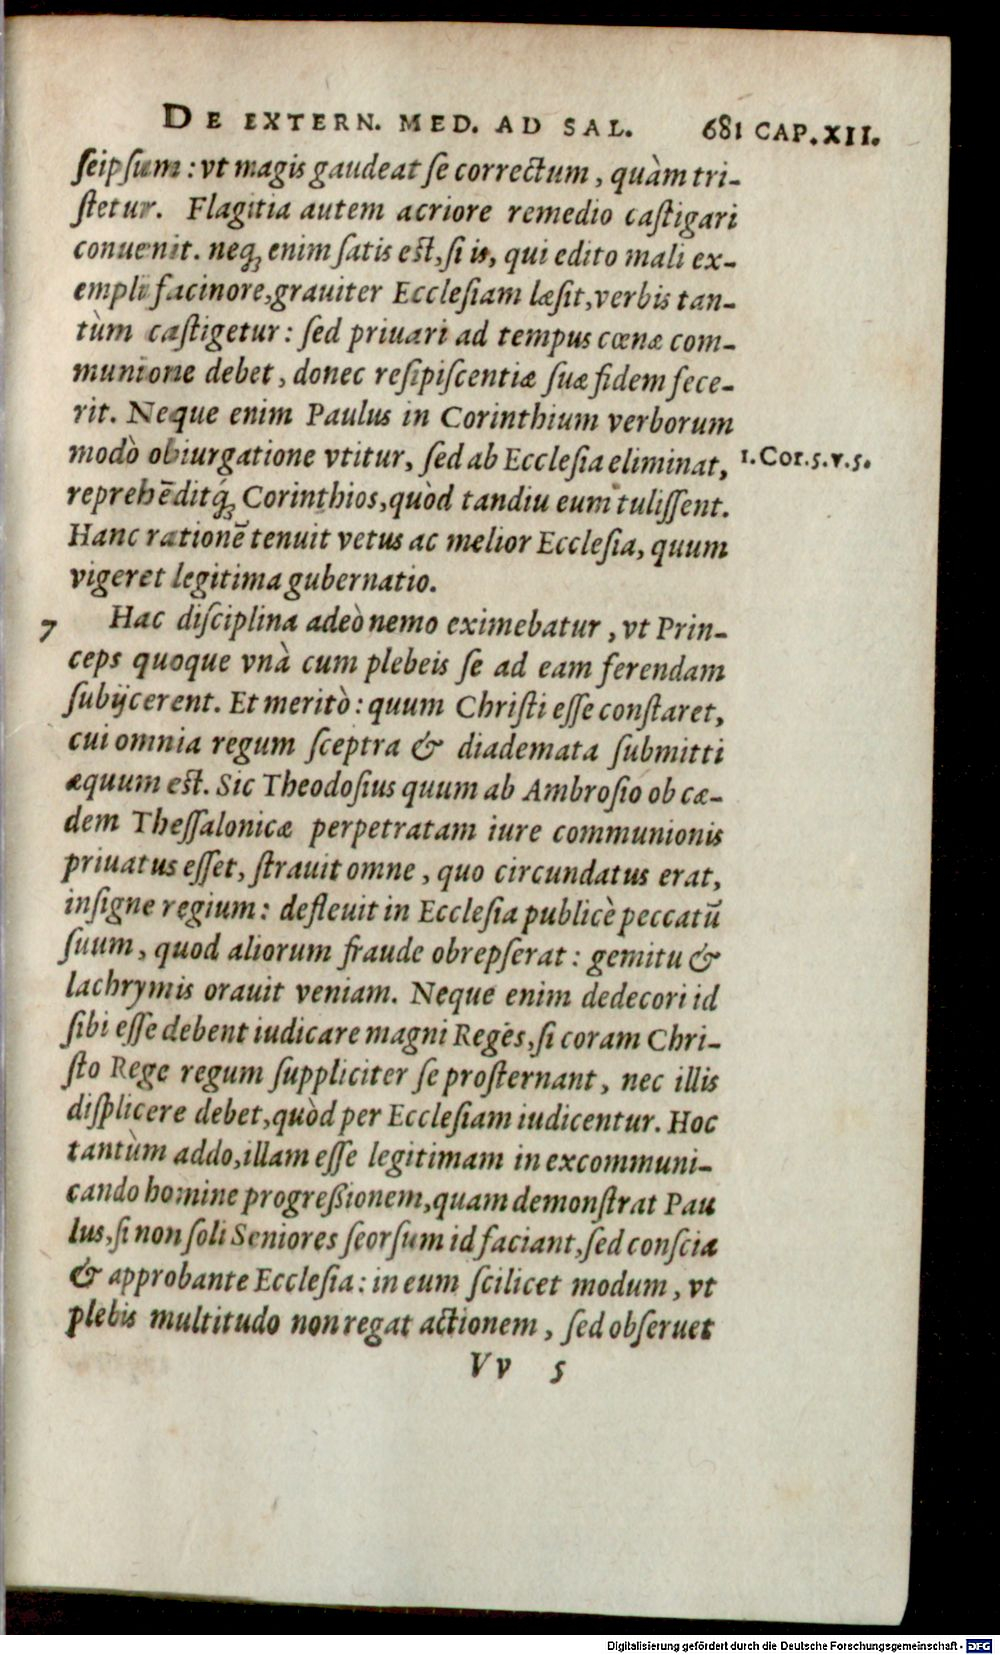 DE EXTERN. MED. AD SAL. 681 CAP. XII.
ſeipſum: vt magis gaudeat ſe correctum, quàm tri-
ſtetur. Flagitia autem acriore remedio caſtigari
conuenit. neq; enim ſatis eſt, ſi is, qui edito mali ex-
empli facinore, grauiter Eccleſiam læſit, verbis tan-
tùm caſtigetur: ſed priuari ad tempus cœnæ com-
munione debet, donec reſipiſcentiæ ſuæ fidem fece-
rit. Neque enim Paulus in Corinthium verborum
modò obiurgatione vtitur, ſed ab Eccleſia eliminat, 1. Cor. 5. v. 5.
reprehēditq́; Corinthios, quòd tandiu eum tuliſſent.
Hanc rationē tenuit vetus ac melior Eccleſia, quum
vigeret legitima gubernatio.
7 Hac diſciplina adeò nemo eximebatur, vt Prin-
ceps quoque vnà cum plebeis ſe ad eam ferendam
ſubijcerent. Et meritò: quum Chriſti eſſe conſtaret,
cui omnia regum ſceptra & diademata ſubmitti
æquum eſt. Sic Theodoſius quum ab Ambroſio ob cæ-
dem Theſſalonicæ perpetratam iure communionis
priuatus eſſet, ſtrauit omne, quo circundatus erat,
inſigne regium: defleuit in Eccleſia publicè peccatū
ſuum, quod aliorum fraude obrepſerat: gemitu &
lachrymis orauit veniam. Neque enim dedecori id
ſibi eſſe debent iudicare magni Reges, ſi coram Chri-
ſto Rege regum ſuppliciter ſe proſternant, nec illis
diſplicere debet, quòd per Eccleſiam iudicentur. Hoc
tantùm addo, illam eſſe legitimam in excommuni-
cando homine progreßionem, quam demonſtrat Pau
lus, ſi non ſoli Seniores ſeorſum id faciant, ſed conſcia
& approbante Eccleſia: in eum ſcilicet modum, vt
plebis multitudo non regat actionem, ſed obſeruet
Vv 5
Digitalisierung gefördert durch die Deutsche Forschungsgemeinschaft - DFG